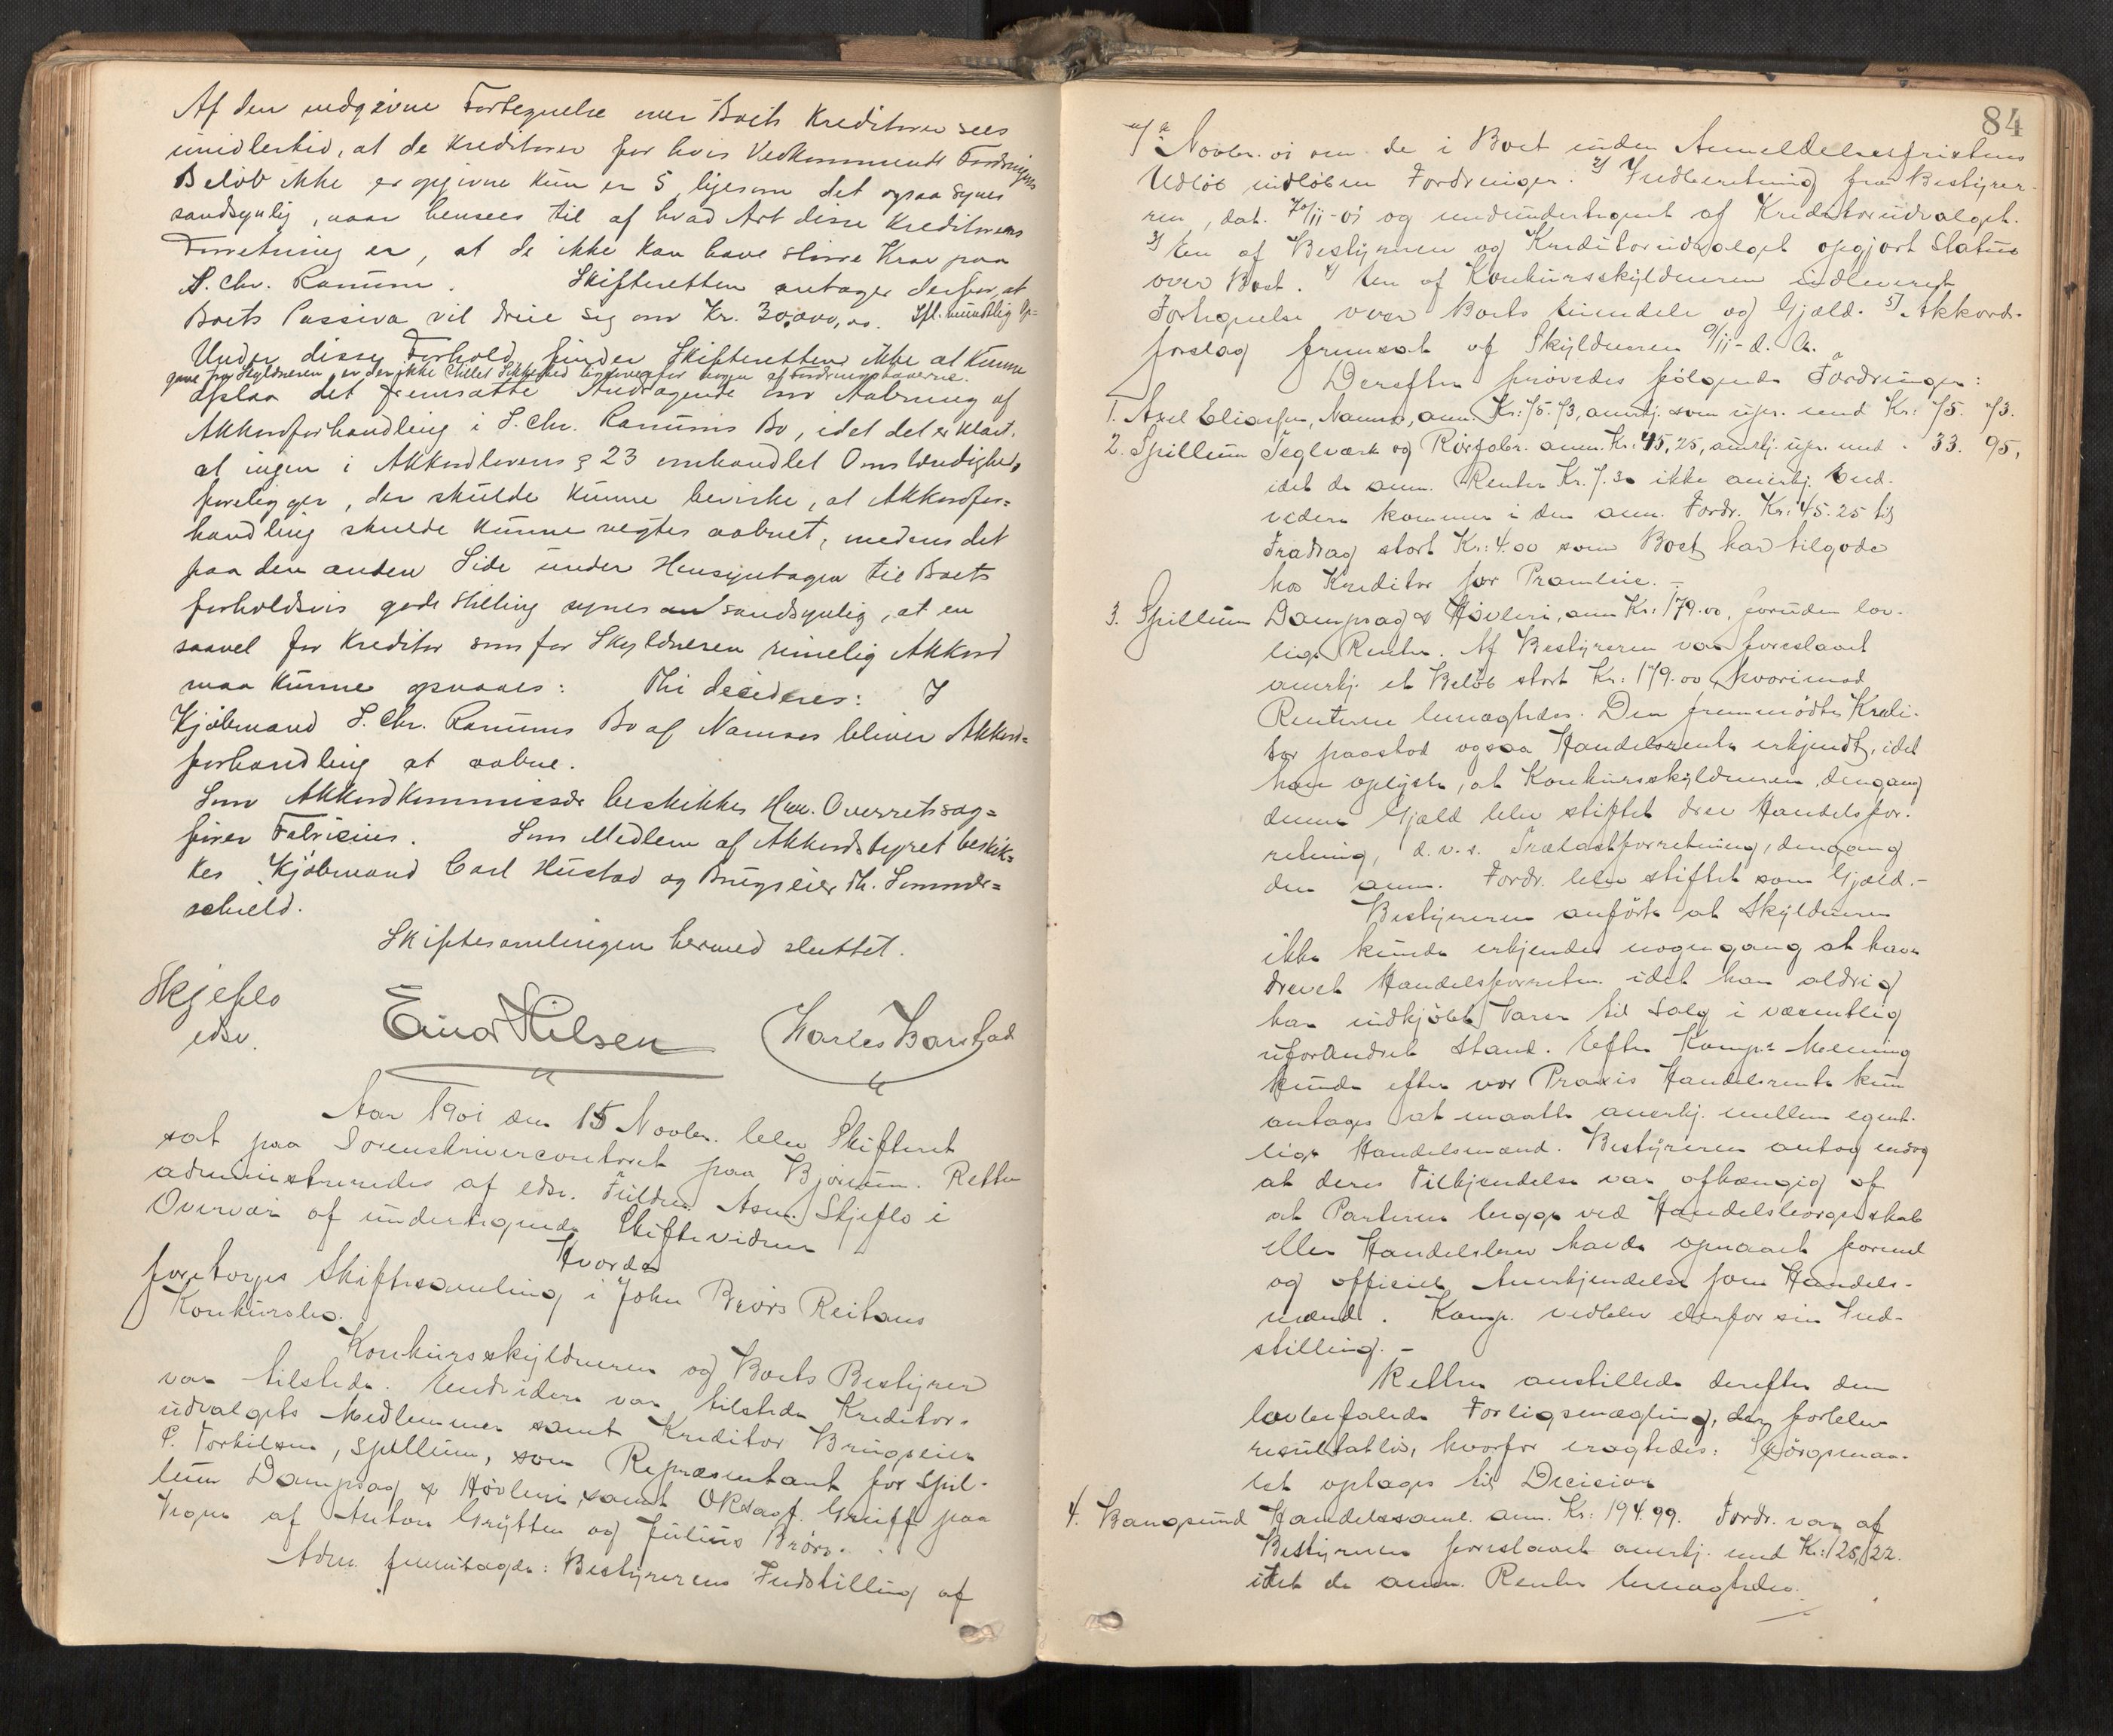 Af den medgivne Fortegnelse over Boets Kreditorer sees
imidlertid, at de Kreditorer for hvis Vedkommende Fordringens
Beløb ikke er opgivne kun er 5, ligesom det ogsaa synes
sandsynlig, naar hensees til af hvad Art disse Kreditorers
Forretning er, at de ikke kan have større Krav paa
S. Chr. Ranum. Skifteretten antager derfor, at
Boets Passiva vil dreie sig om Kr. 30,000,00. Ifl. mundtlig Op=
gave fra Skyldneren er der ikke stillet Sikkerhed ligeoverfor nogen af Fordringshaverne.
Under disse Forhold finder Skifteretten ikke at kunne
afslaa det fremsatte Andragende om Aabning af
Akkordforhandling i S. Chr. Ranums Bo, idet det er klart,
at ingen i Akkordlovens § 23 omhandlet Omstændighed
foreligger, der skulde kunne bevirke, at Akkordfor=
handling skulde kunne negtes aabnet, medens det
paa den anden Side under Hensyntagen til Boets
forholdsvis gode Stilling synes sandsynlig, at en
saavel for Kreditor som for Skyldneren rimelig Akkord
maa kunne opnaaes: Thi decideres: I
Kjøbmand S. Chr. Ranums Bo af Namsos bliver Akkord=
forhandling at aabne.
Som Akkordkommissær beskikkes Hrr. Overretssag=
fører Fabricius. Som Medlem af Akkordstyret beskik=
kes Kjøbmand Carl Hustad og Brugseier Th. Sommer=
schield.
Skiftesamlingen hermed sluttet.
Skjeflo
edsv.
Einar Nilsen Charles Barstad
Aar 1901 den 15 Novbr. blev Skifteret
sat paa Sorenskrivercontoret paa Bjørum. Retten
administreredes af edsv. Fuldm. Asm. Skjeflo i
Overvær af undertegnede Skiftevidner
Hvorda
foretoges Skiftesamling i John Brørs Reitans
Konkursbo.
Konkursskyldneren og Boets Bestyrer
var tilstede. Endvidere var tilstede Kreditor-
udvalgets Medlemmer samt Kreditor Brugseier
P. Torkilsen, Spillum, som Repræsentant for Spil-
lum Dampsag & Høvleri, samt Oksagf. Greiff paa
Vegne af Anton Grytten og Julius Brørs.
Adm. fremlagde: Bestyrerens Indstilling af
84
Novbr. 01 om de i Boet inden Anmeldelsesfristens
Udløb indløbne Fordringer. 2) Indberetning fra Bestyrer-
ren, dat. /11-01 og medundertegnet af Kreditorudvalget.
3) En af Bestyreren og Kreditorudvalget opgjort Status
over Boet. 4) En af Konkursskyldneren indleveret
Fortegnelse over Boets Eiendele og Gjæld. 5) Akkord-
forslag fremsat af Skyldneren 9/11- d. A.
Derefter prøvedes følgende Fordringer:
1. Axel Eliassen, Namsos, anm. Kr: 75.73, anerkj. som upr. med Kr: 75. 73.
2. Spillum Teglværk og Rørfabr. anm. Kr: 45,25, anerkj. upr. med - 33. 95,
idet de anm. Renter Kr. 7.30 ikke anerkj. End-
videre kommer i den anm. Fordr. Kr: 45.25 til
Fradrag stort Kr: 4.00 som Boet har tilgode
hos Kreditor for Pramleie. -
3. Spillum Dampsag & Høvleri, anm Kr: 179.00, foruden lov-
lige Renter. Af Bestyreren var foreslaaet
anerkj. et Beløb stort Kr: 179.00, hvorimod
Renterne benægtedes. Den fremmødte Kredi-
tor paastod ogsaa Handelsrente erkjendt, idet
han oplyste, at Konkursskyldneren, dengang
denne Gjæld blev stiftet drev Handelsfor-
retning, d. v. s. Trælastforretning, dengang
den anm. Fordr. blev stiftet som Gjæld. -
Bestyreren anførte at Skyldneren
ikke kunde erkjendes nogengang at have
drevet Handelsforretn. idet han aldrig
har indkjøbt Varer til Salg i væsentlig
uforandret Stand. Efter Komp.s Mening
kunde efter vor Praxis Handelsrente kun
antages at maatte anerkj. mellem egent-
lige Handelsmænd. Bestyreren antog endog
at deres Tilkjendelse var afhængig af
at Parterne begge ved Handelsborgerskab
eller Handelsbrev havde opnaaet formel
og officiel Anerkjendelse som Handels-
mænd. Komp. vedblev derfor sin Ind-
stilling. -
Retten anstillede derefter den
lovbefalede Forligsmægling, der forblev
resultatløs, hvorfor eragtedes: Spørgsmaa-
let optages til Decision
4. Bangsund Handelssaml. anm. Kr: 194.99. Fordr. var af
Bestyreren foreslaaet anerkj. med Kr: 125,22.
idet de anm. Renter benægtedes.